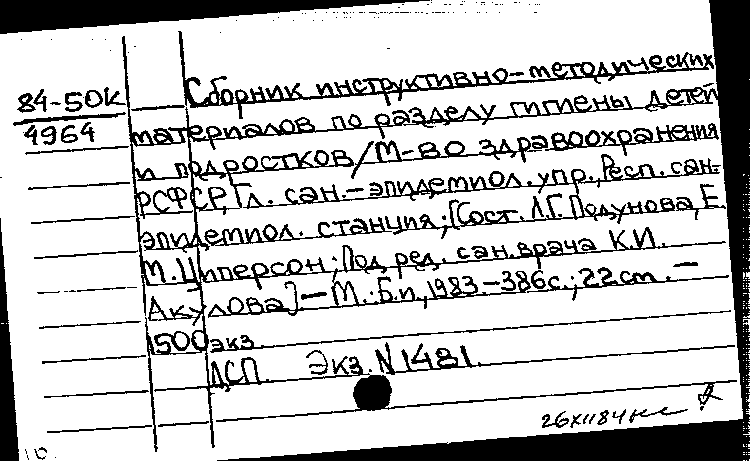 84-5ОК
4964
Сборник инструктивно-методических
материалов по разделу гигиены детей
и подростков/М-во здравоохранения
РСФСР, Гл. сан.-эпидемиол. упр., Респ. сан.-
эпидемиол. станция; [Сост. Л.Г. Подунова, Е.
М. Циперсон; Под ред. сан. врача К.И.
Акулова] — М.: Б.и., 1983. — 386 с.; 22 cm. —
1500 экз.
ДСП. Экз. N 1481.
26XII84
10